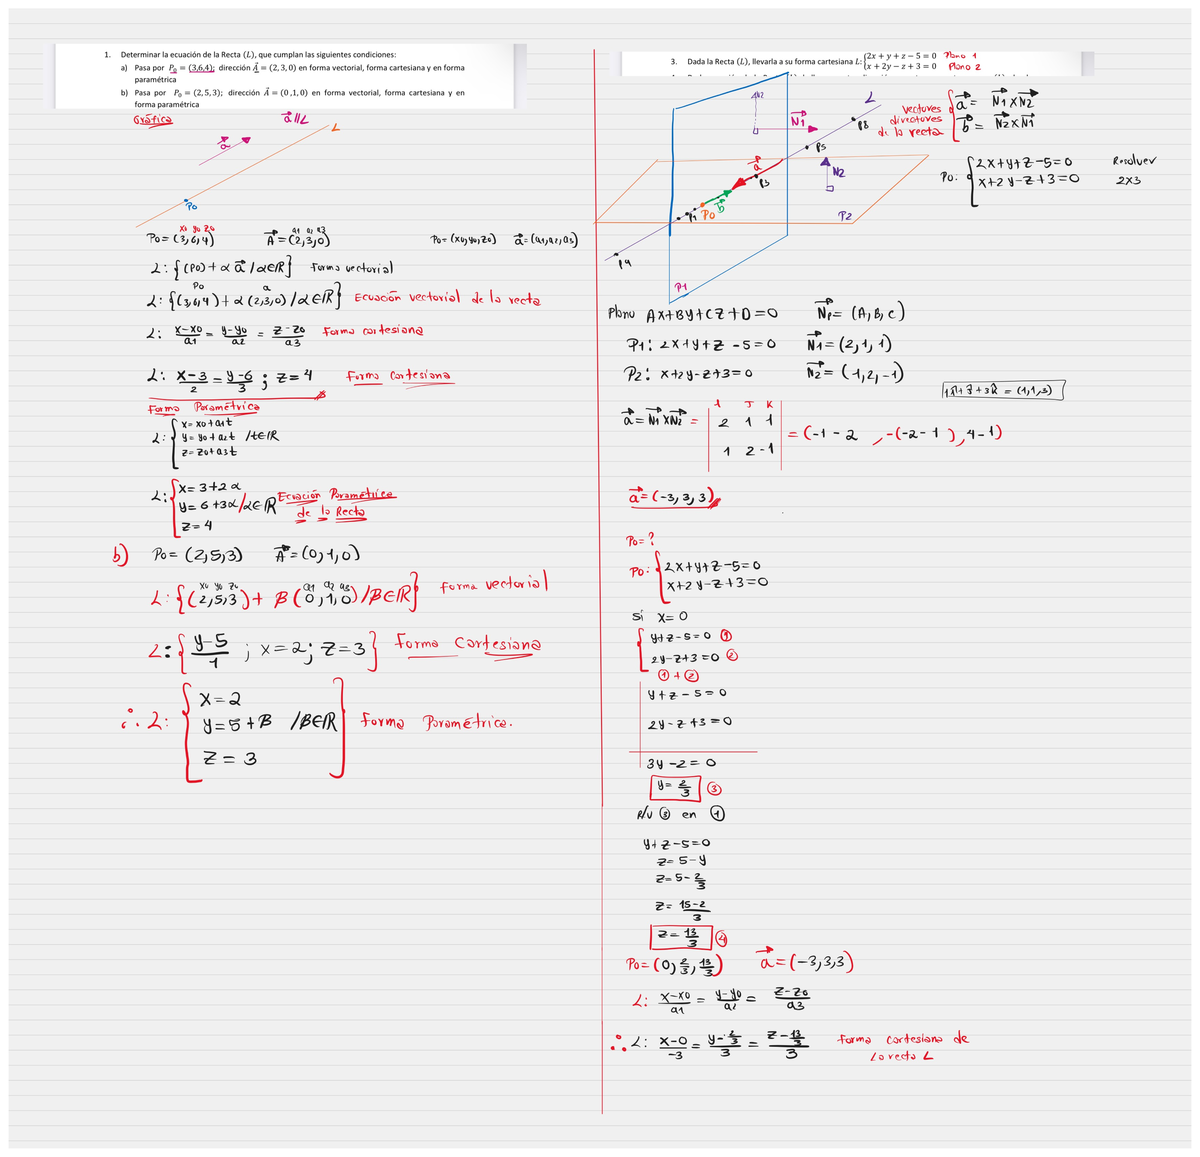 1. Determinar la ecuación de la Recta (L), que cumplan las siguientes condiciones:
a) Pasa por P₀ = (3,6,4); dirección A⃗ = (2, 3, 0) en forma vectorial, forma cartesiana y en forma
paramétrica
b) Pasa por P₀ = (2, 5, 3); dirección A⃗ = (0 ,1, 0) en forma vectorial, forma cartesiana y en
forma paramétrica
Gráfica
a⃗ // L
L
a⃗
Po
xo yo zo
Po = (3,6,4)
a1 a2 a3
A⃗ = (2,3,0)
Po = (xo,yo,zo) a⃗ = (a1,a2,a3)
L: {(Po) + α a⃗ / α∈IR} Forma vectorial
Po a
L: {(3,6,4) + α (2,3,0) / α∈IR} Ecuación vectorial de la recta
L: x-xo/a1 = y-yo/a2 = z-zo/a3 Forma cartesiana
L: x-3/2 = y-6/3 ; z=4 Forma Cartesiana
Forma Paramétrica
L: { x = xo + a1 t
y = yo + a2 t / t∈IR
z = zo + a3 t
L: { x = 3+2α
y = 6+3α / α∈IR Ecuación Paramétrica
de la Recta
z = 4
b) Po = (2,5,3) A⃗ = (0,1,0)
xo yo zo a1 a2 a3
L: {(2,5,3) + β (0,1,0) / β∈IR} Forma vectorial
L: { y-5/1 ; x=2; z=3 } Forma Cartesiana
∴ L: { x = 2
y = 5 + β / β∈IR } Forma Paramétrica.
z = 3
3. Dada la Recta (L), llevarla a su forma cartesiana L: {2x + y + z − 5 = 0 Plano 1
x + 2y − z + 3 = 0 Plano 2
N2
N1
L
P8
P5
a⃗
P3
N2
b⃗
P1 Po
P2
P4
P1
vectores
directores
de la recta
{ a⃗ = N1 x N2
b⃗ = N2 x N1
Po: { 2x+y+z-5=0
x+2y-z+3=0
Resolver
2x3
Plano Ax+By+Cz+D=0 Np = (A,B,C)
P1: 2x+y+z-5=0 N1 = (2,1,1)
P2: x+2y-z+3=0 N2 = (1,2,-1)
1i + j + 3k = (1,1,3)
a⃗ = N1 x N2 = | i j k
2 1 1
1 2 -1 | = (-1-2 , -(-2-1), 4-1)
a⃗ = (-3,3,3)
Po = ?
Po: { 2x+y+z-5=0
x+2y-z+3=0
Si x=0
{ y+z-5=0 ①
2y-z+3=0 ②
① + ②
y+z-5=0
2y-z+3=0
3y-2=0
y = 2/3 ③
R/V ③ en ①
y+z-5=0
z=5-y
z=5-2/3
z= 15-2/3
z = 13/3 ④
Po = (0, 2/3, 13/3) a⃗ = (-3,3,3)
L: x-xo/a1 = y-yo/a2 = z-zo/a3
∴ L: x-0/-3 = y-2/3/3 = z-13/3/3 Forma cartesiana de
la recta L